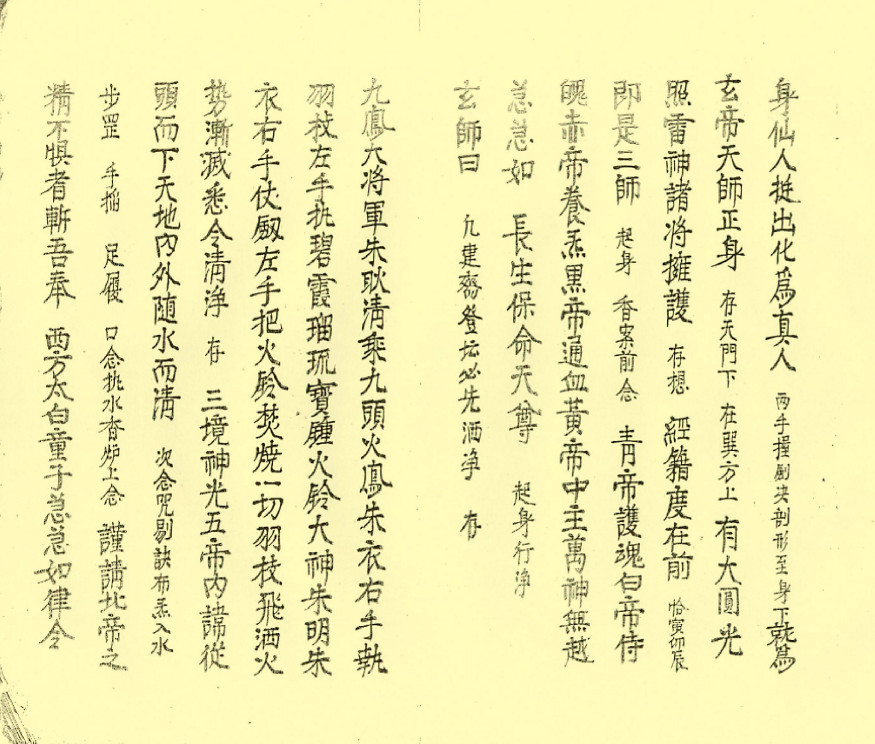 身仙人挺出化爲真人 兩手握劍決剖形至身下就爲
玄帝天師正身 存天門下 在巽方上 有大圓光
照雷神諸将擁護 存想 經籍度在前 恰寅卯辰
即是三師 起身 香案前念 青帝護魂白帝侍
魄赤帝養炁黒帝通血黃帝中主萬神無越
急急如 長生保命天尊 起身行淨
玄師曰 凢建齋登坛必先洒净 存
九鳳大将軍朱耿清乘九頭火鳳朱衣右手執
羽枝左手执碧霞瑠琉寶鍾火鈴大神朱明朱
衣右手仗劔左手把火鈴焚燒一切羽枝飛洒火
势漸滅悉令清浄 存 三境神光五帝内諱從
頭而下天地内外随水而清 次念咒剔訣布炁入水
步罡 手搯 足履 口念执水香炉上念 謹請北帝之
精不惧者斬吾奉 西方太白童子急急如律令